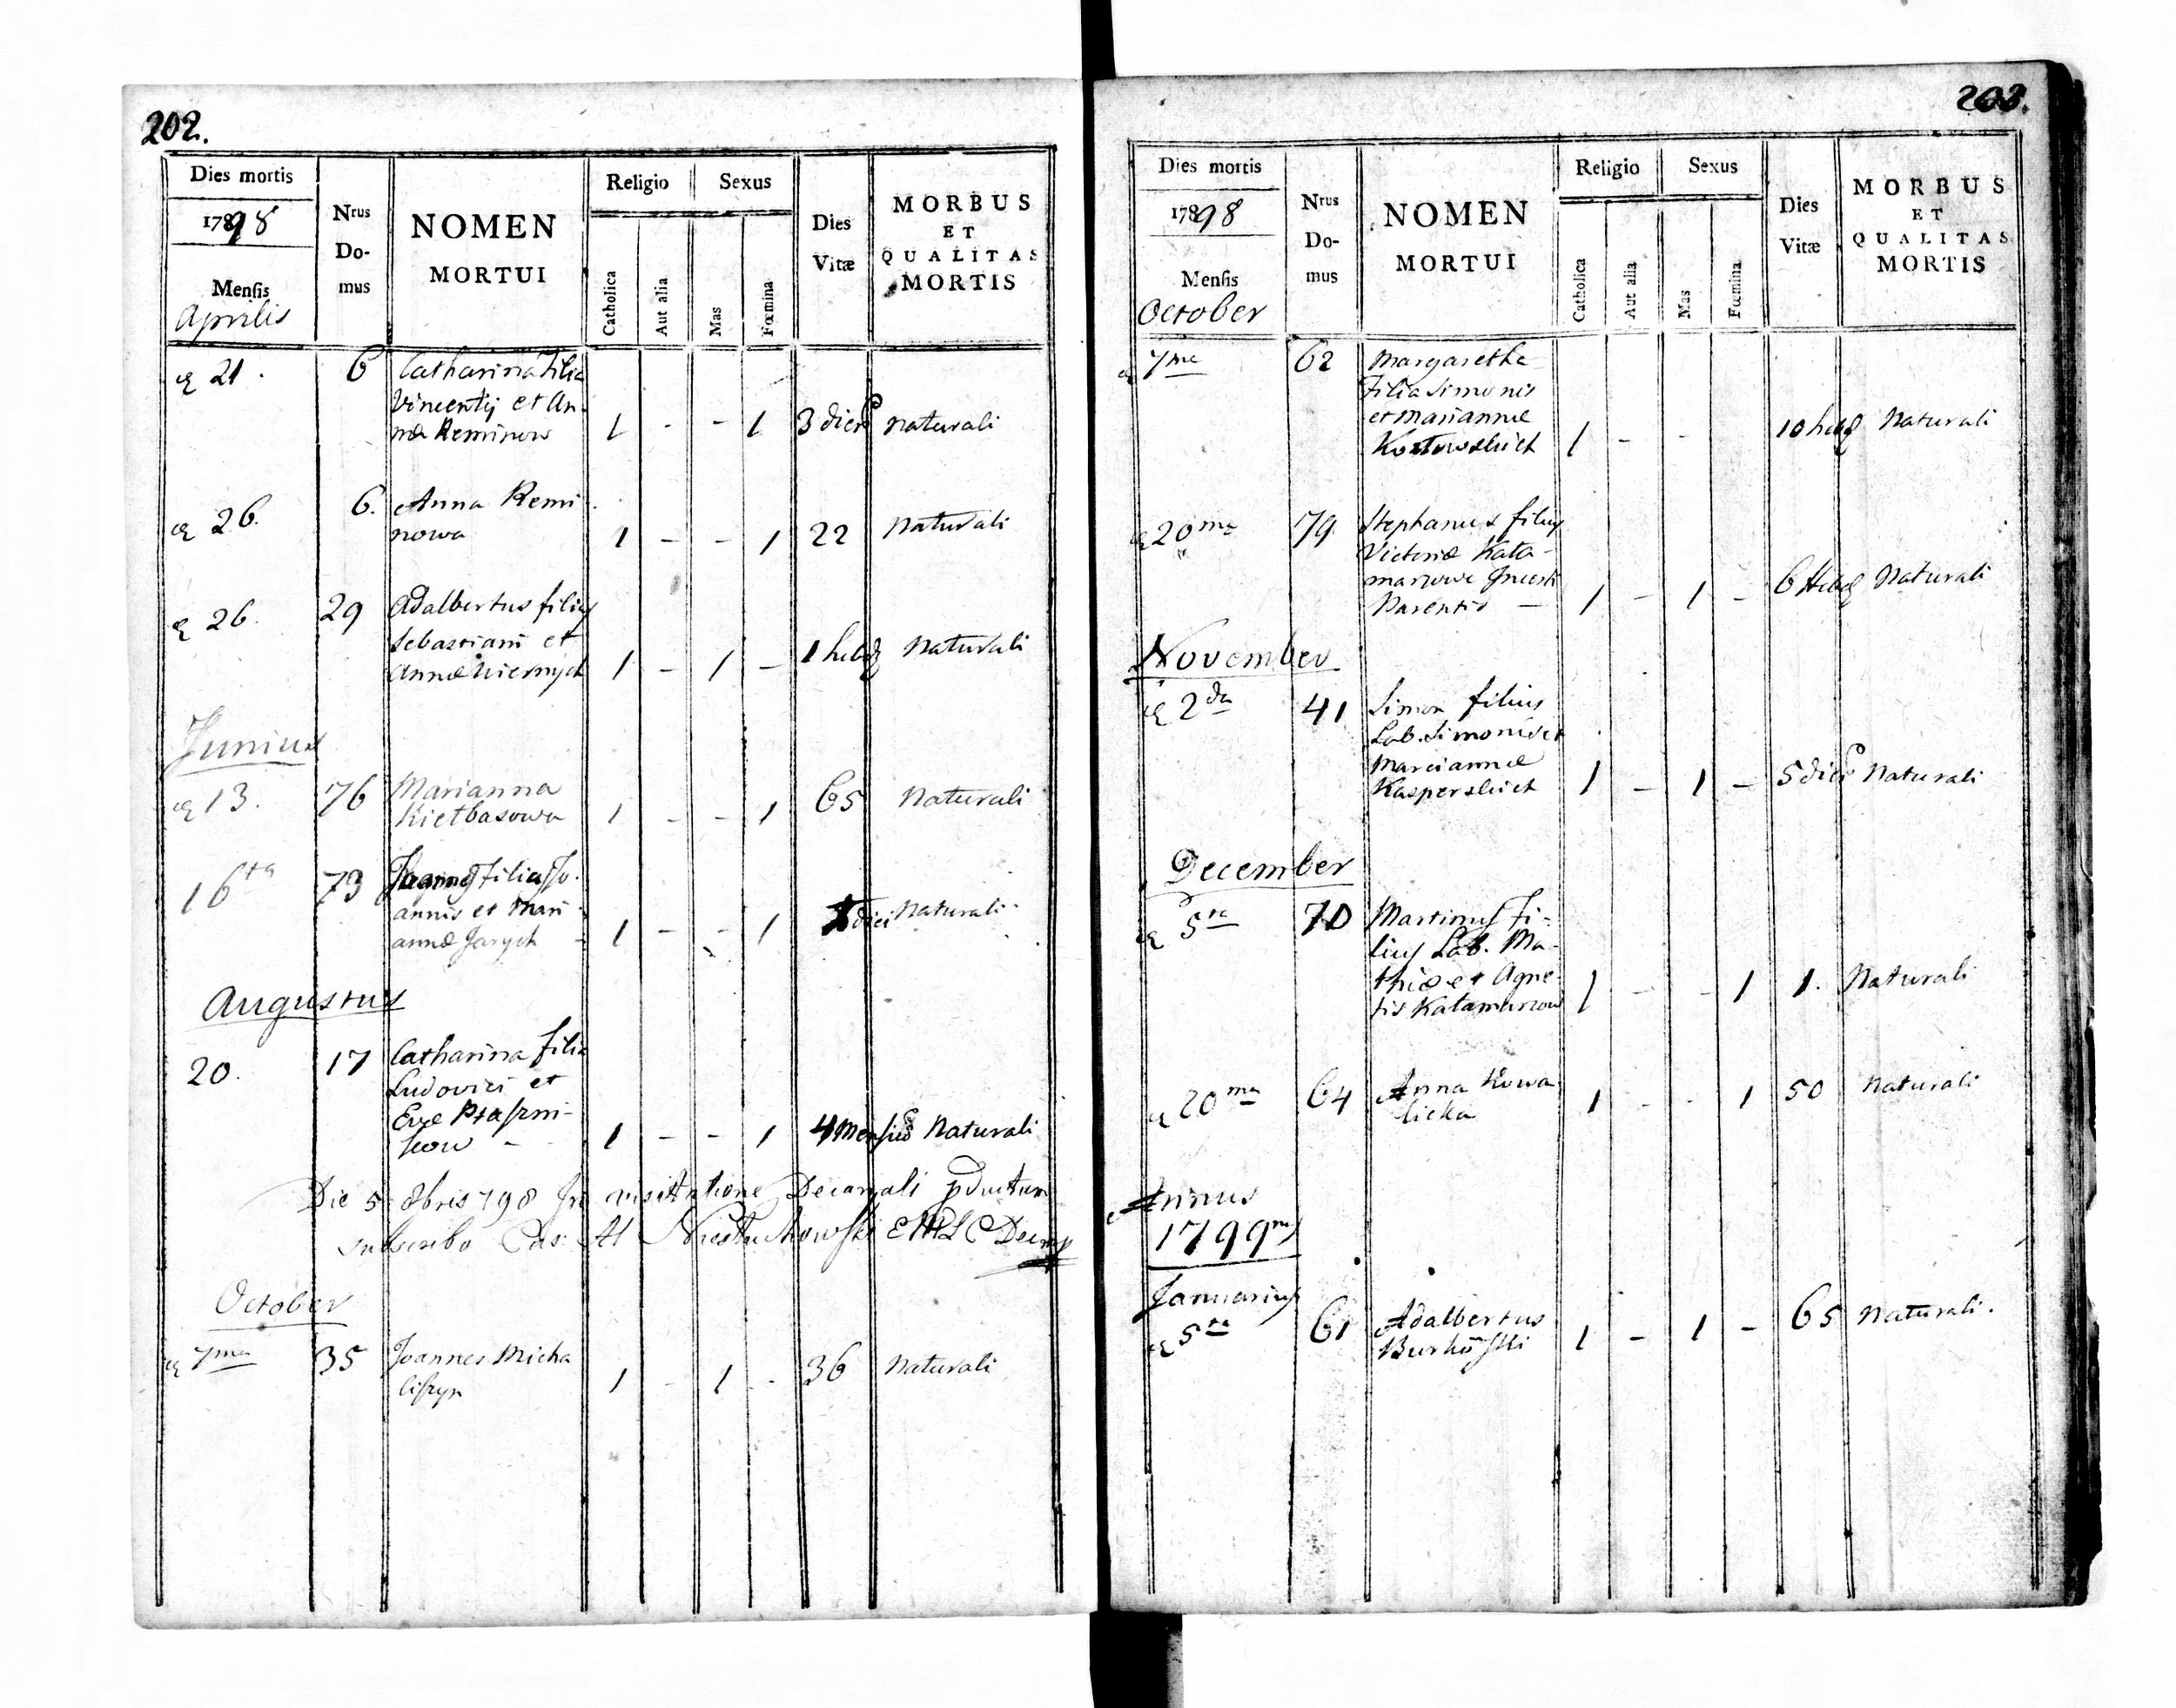 202.
Dies mortis
1798
Mensis
Aprilis
Nrus Do- mus
NOMEN
MORTUI
Religio
Catholica
Aut alia
Sexus
Mas
Fœmina
Dies
Vitæ
MORBUS
ET
QUALITAS
MORTIS
21. 6 Catharina Filia
Vincentij et An-
næ Reminow 1 - - 1 3 dier naturali
26. 6. Anna Remi-
nowa 1 - - 1 22 Naturali
26. 29 Adalbertus filius
Sebastiani et
Annæ 1 - 1 - 1 hebd Naturali
Junius
13. 76 Marianna
Kiełbasowa 1 - - 1 65 Naturali
16ta 73 filia Jo-
annis et Mari-
annæ Jarych - 1 - - 1 diei Naturali
Augustus
20. 17 Catharina filia
Ludovici et
Evæ Ptaszni-
kow - 1 - - 1 4 Mensiū Naturali
Die 5 8bris 798 In visitatione Decanali pductum
subscribo
October
7ma 35 Joannes Micha
liszyn 1 - 1 - 36 Naturali
203.
Dies mortis
1798
Mensis
October
Nrus Do- mus
NOMEN
MORTUI
Religio
Catholica
Aut alia
Sexus
Mas
Fœmina
Dies
Vitæ
MORBUS
ET
QUALITAS
MORTIS
7me 62 Margaretha
Filia Simonis
et Mariannæ
1 - - 10 hebd Naturali
20ma 79 Stephanus filius
Victoriæ Kata-
marzowe Incerti
Parentis - 1 - 1 - 6 Hebd Naturali
November
2da 41 Simon filius
Lab. Simonis et
Mariannæ
Kasperskich 1 - 1 - 5 dier Naturali
December
5ta 70 Martinus Fi-
lius Lab. Ma-
thiæ et Agne-
tis Katamarzow 1 - - 1 1. Naturali
20ma 64 Anna Kowa
licka 1 - - 1 50 Naturali
Annus
1799nus
Januarius
5ta 61 Adalbertus
1 - 1 - 65 Naturali.